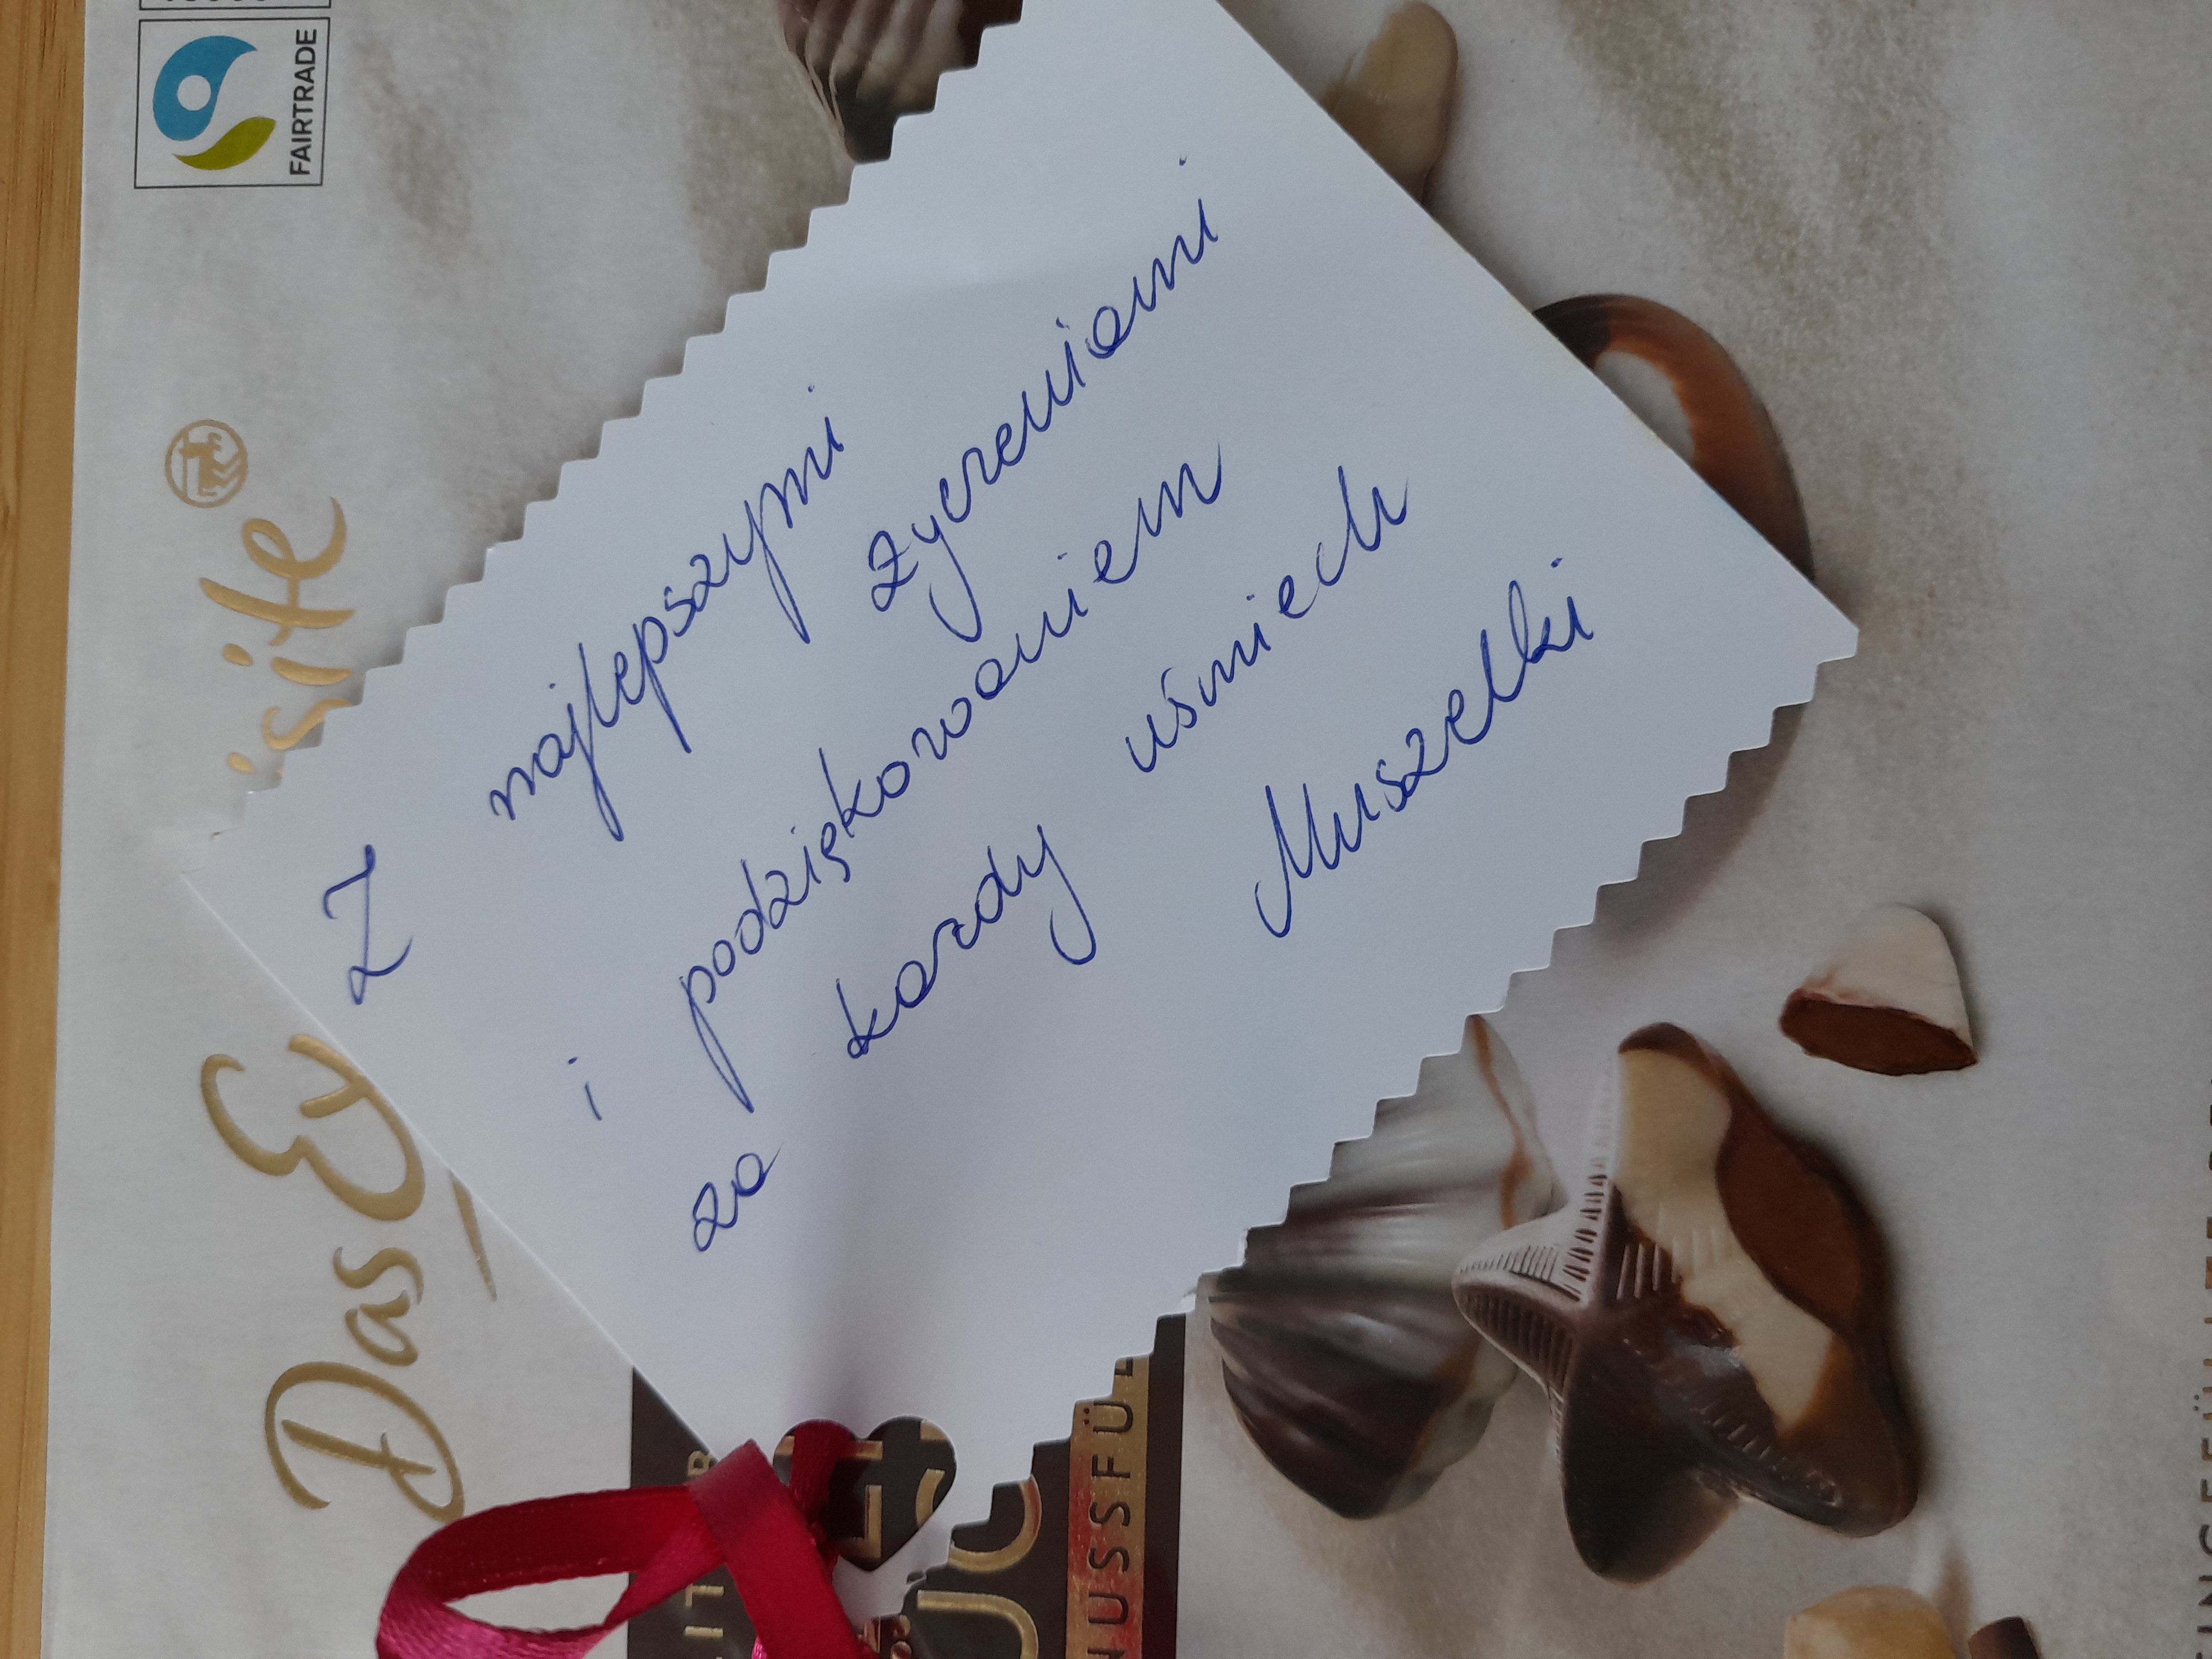 FAIRTRADE
Das Ex isite
Z najlepszymi
życzeniami
i podziękowaniem
za każdy uśmiech
Muszelki